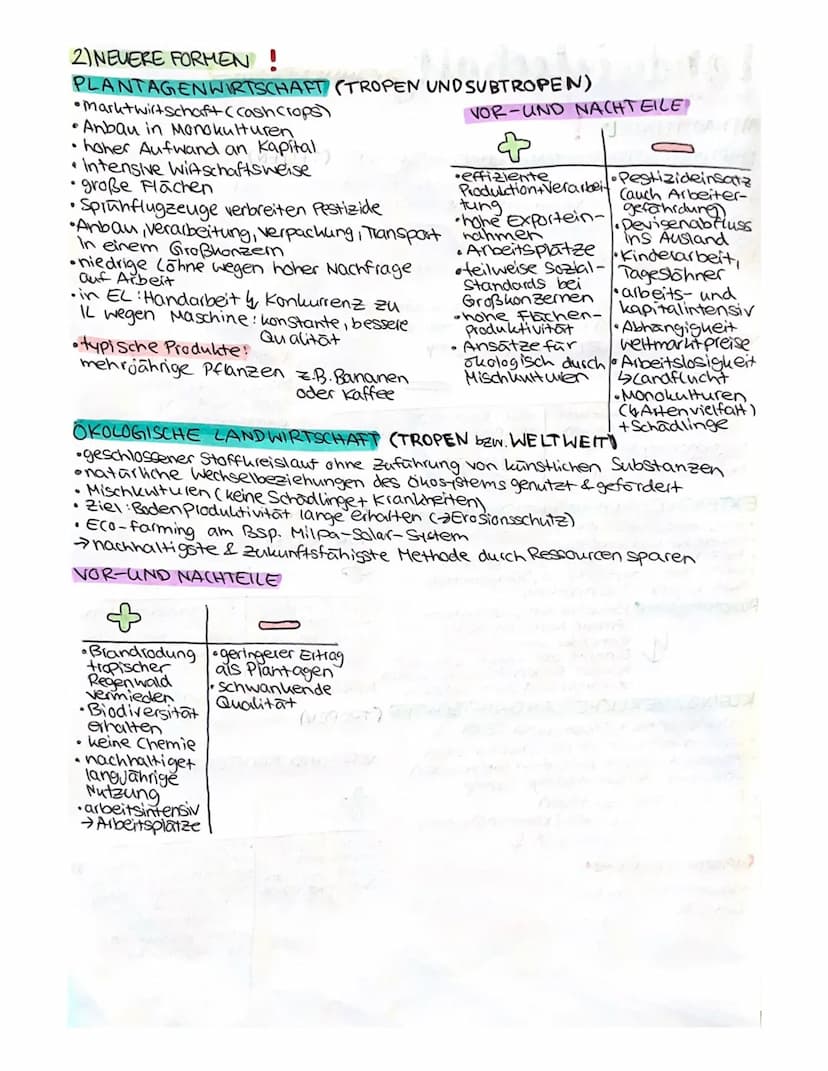 2) NEUERE FORMEN !
PLANTAGENWIRTSCHAFT (TROPEN UND SUBTROPEN)
• Marktwirtschaft (cash crops)
• Anbau in Monokulturen
• hoher Aufwand an Kapital
• Intensive Wirtschaftsweise
• große Flächen
• Sprühflugzeuge verbreiten Pestizide
• Anbau, Verarbeitung, Verpackung, Transport
in einem Großkonzern
• niedrige Löhne wegen hoher Nachfrage
auf Arbeit
• in EL: Handarbeit ↳ Konkurrenz zu
IL wegen Maschine: konstante, bessere
Qualität
• typische Produkte:
mehrjährige Pflanzen z.B. Bananen
oder Kaffee
VOR- UND NACHTEILE
+
• effiziente
Produktion + Verarbei-
tung
• hohe Exportein-
nahmen
• Arbeitsplätze
• teilweise Sozial-
Standards bei
Großkonzernen
• hohe Flächen-
produktivität
• Ansätze für
ökologisch durch
Mischkulturen
—
• Pestizideinsatz
(auch Arbeiter-
gefährdung)
• Devisenabfluss
ins Ausland
• Kinderarbeit,
Tageslöhner
• arbeits- und
kapitalintensiv
• Abhängigkeit
Weltmarktpreise
• Arbeitslosigkeit
↳ Landflucht
• Monokulturen
(↳ Artenvielfalt)
+ Schädlinge
ÖKOLOGISCHE LANDWIRTSCHAFT (TROPEN bzw. WELTWEIT)
• geschlossener Stoffkreislauf ohne Zuführung von künstlichen Substanzen
• natürliche Wechselbeziehungen des Ökosystems genutzt & gefördert
• Mischkulturen (keine Schädlinge + Krankheiten)
• Ziel: Bodenproduktivität lange erhalten (→ Erosionsschutz)
• Eco-farming am Bsp. Milpa-Solar-System
→ nachhaltigste & zukunftsfähigste Methode durch Ressourcen sparen
VOR- UND NACHTEILE
+
• Brandrodung
tropischer
Regenwald
vermieden
• Biodiversität
erhalten
• keine Chemie
• nachhaltige +
langjährige
Nutzung
• arbeitsintensiv
→ Arbeitsplätze
—
• geringerer Ertrag
als Plantagen
• schwankende
Qualität